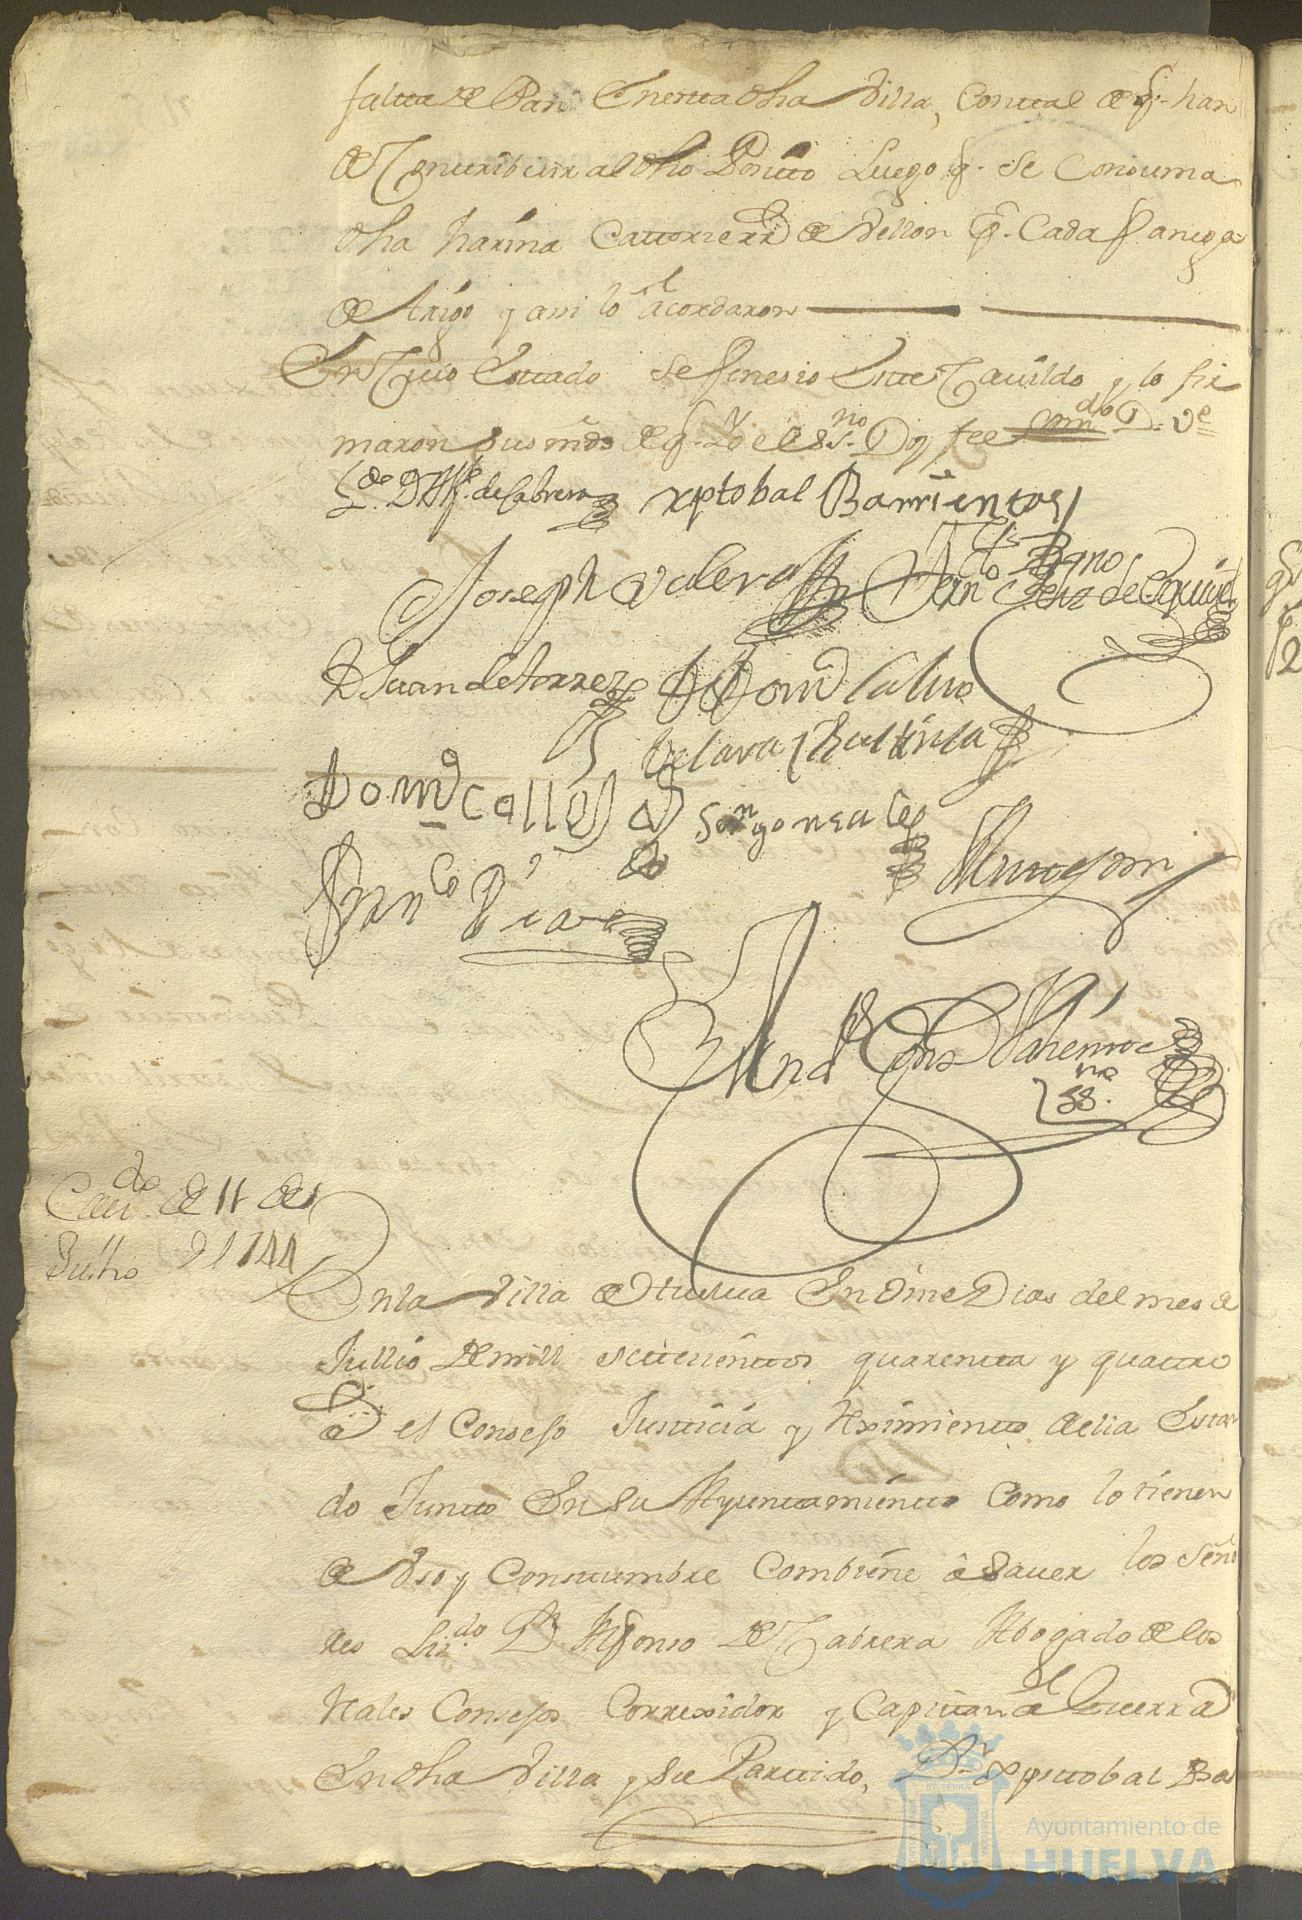 falta de Pan Enesta dha Villa, Con tal de q. han
de Contribuir al dho Posito Luego q. se Consuma
dha harina Catorze rr.s de Vellon p.r Cada fanega
de trigo y assi lo acordaron
En Cuio Estado se fenesio Este Cavildo y lo fir
maron sus mds de q. Yo el ess.no Doy fee
L.do D. Alf.o de Cabrera xptobal Barrientos
Joseph Valero
D Juan de torres D Dom.o Calvo
de lara Chastida
Dom.o Calles Seb.n gonsales
Fran.co Dias
ss.no
Cav.do de 11 de
Jullio de 1744
En la Villa de Huelva En Onze Dias del mes de
Jullio de mill setecientos quarenta y quatro
el Consejo Justicia y Reximiento della Estan
do Junto En su Ayuntamiento Como lo tienen
de Vso y Constumbre Combiene â Saver los Señor
es Liz.do D.n Alfonso de Cabrera Abogado de los
Reales Consejos Correxidor y Capitan a Guerra
En dha Villa y su Partido, D.n xptobal Ba
Ayuntamiento de
HUELVA